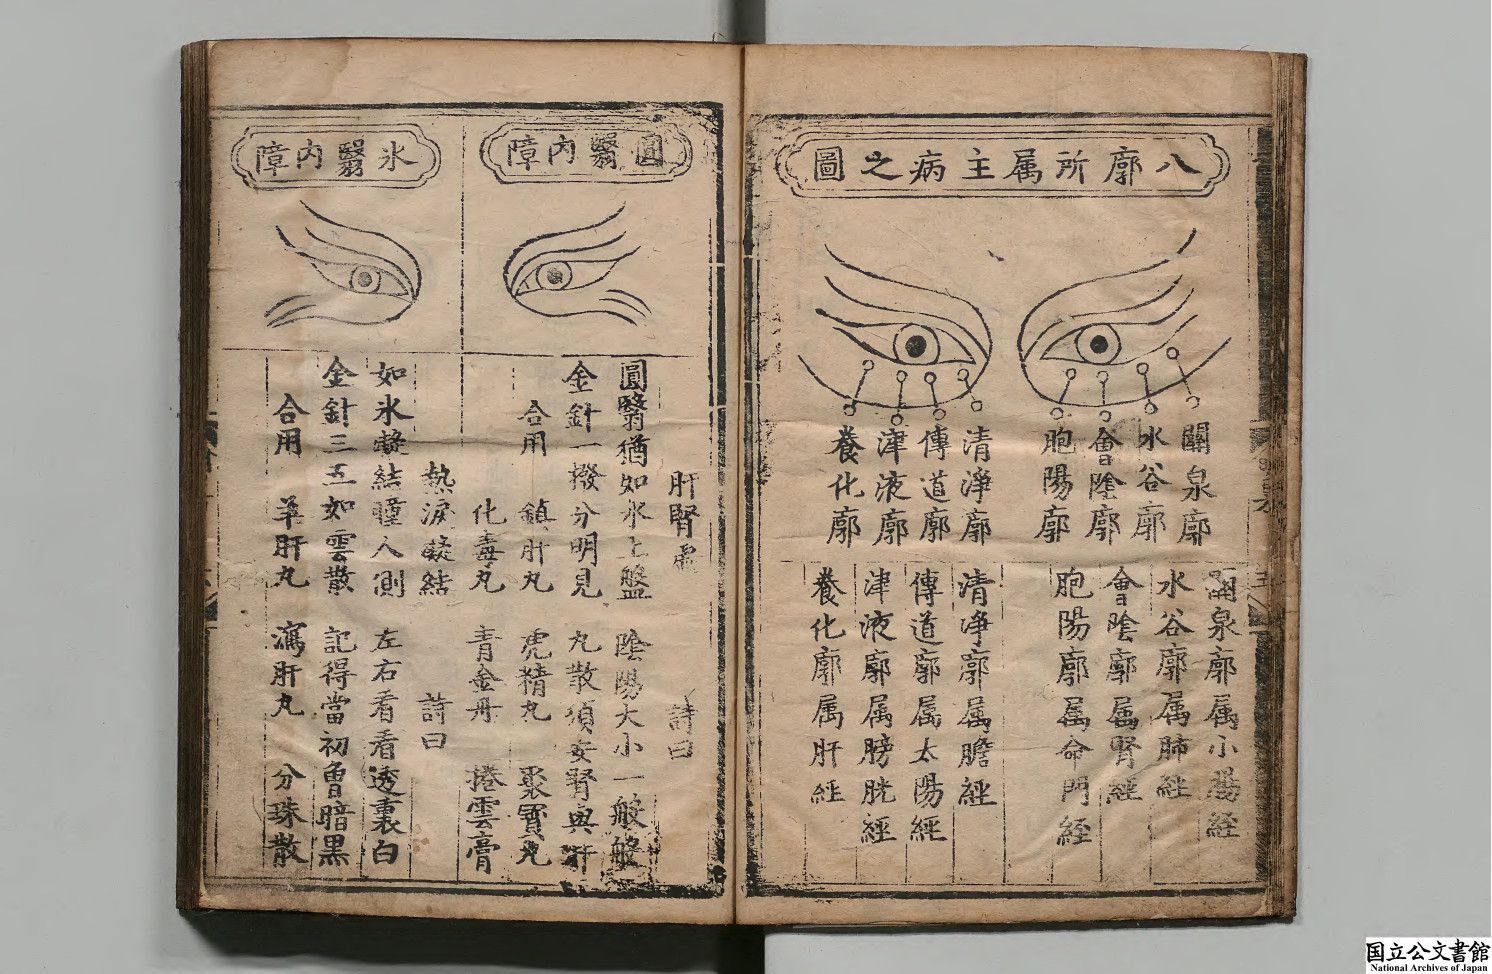 八廓所属主病之圖
關泉廓
水谷廓
會陰廓
胞陽廓
清淨廓
傳道廓
津液廓
養化廓
關泉廓属小腸経
水谷廓属肺経
會陰廓属腎経
胞陽廓属命門経
清淨廓属膽經
傳道廓属太陽經
津液廓属膀胱經
養化廓属肝経
圓翳内障
肝腎虚 詩曰
圓翳猶如水上盤 陰陽大小一般般
金針一撥分明見 丸散須安腎與肝
合用 鎮肝丸 虎精丸 聚寳丸
化毒丸 青金丹 捲雲膏
氷翳内障
熱淚凝結 詩曰
如氷凝結瞳人側 左右看看透裏白
金針三五如雲散 記得當初曾暗黒
合用 羊肝丸 瀉肝丸 分珠散
国立公文書館
National Archives of Japan